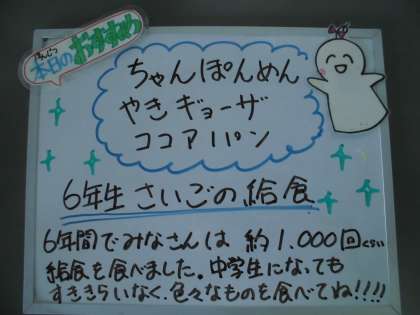 ほんじつ
本日のおすすめ
ちゃんぽんめん
やきギョーザ
ココアパン
6年生 さいごの給食
6年間でみなさんは 約1.000回くらい
給食を食べました。中学生になっても
すききらいなく、色々なものを食べてね!!!!